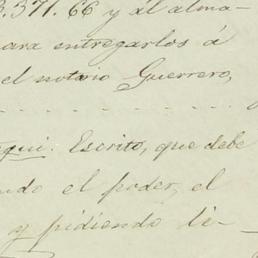 3.371.66 y al alma-
para entregarlos á
el notario Guerrero,
qui: Escrito, que debe
ndo el poder, el
y pidiendo li-